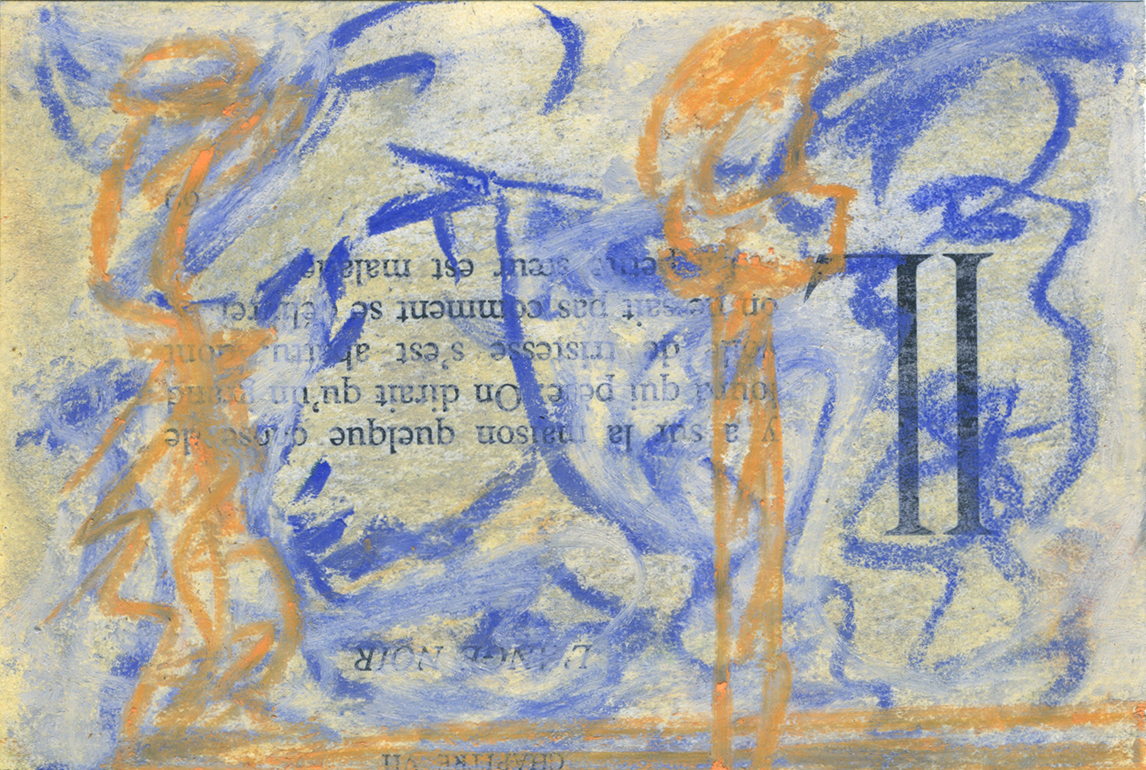 CHAPITRE VII
L'ANGE NOIR
Il y a sur la maison quelque chose de
lourd qui pèse. On dirait qu'un grand
voile de tristesse s'est abattu, dont
on ne sait pas comment se délivrer
petite sœur est malade
69